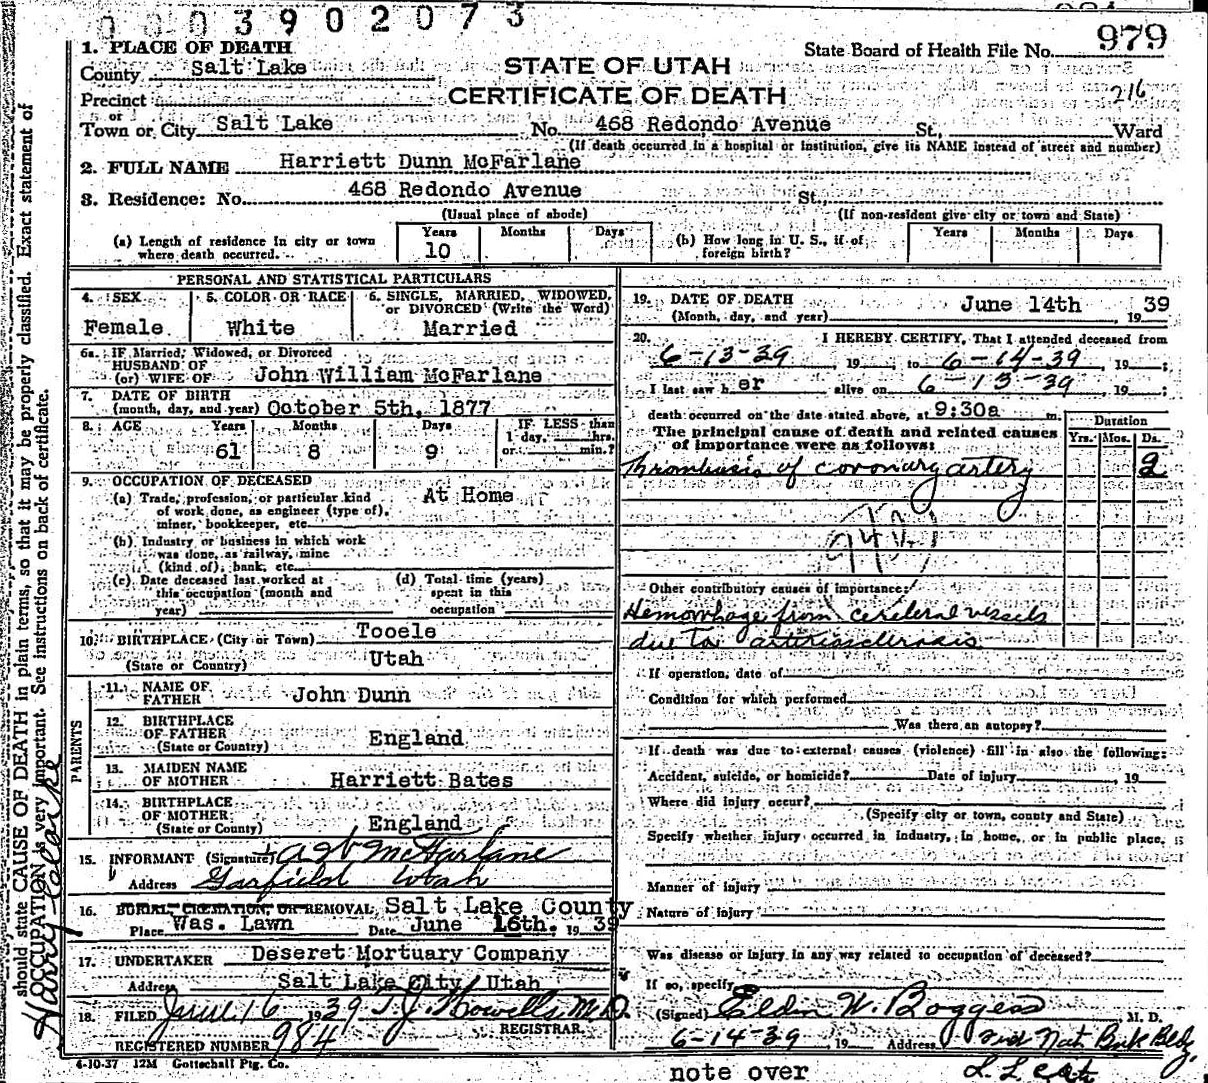 0003902073
State Board of Health File No. 979
216
STATE OF UTAH
CERTIFICATE OF DEATH
1. PLACE OF DEATH
County Salt Lake
Precinct
or
Town or City Salt Lake No. 468 Redondo Avenue St., Ward
(If death occurred in a hospital or institution, give its NAME instead of street and number)
2. FULL NAME Harriett Dunn McFarlane
3. Residence: No. 468 Redondo Avenue St.,
(Usual place of abode) (If non-resident give city or town and State)
(a) Length of residence in city or town where death occurred. Years 10 Months Days
(b) How long in U. S., if of foreign birth? Years Months Days
PERSONAL AND STATISTICAL PARTICULARS
4. SEX 5. COLOR OR RACE 6. SINGLE, MARRIED, WIDOWED, or DIVORCED (Write the Word)
Female White Married
6a. IF Married, Widowed, or Divorced
HUSBAND OF
(or) WIFE OF John William McFarlane
7. DATE OF BIRTH
(month, day, and year) October 5th, 1877
8. AGE Years Months Days IF LESS than
61 8 9 1 day, hrs. or min.?
9. OCCUPATION OF DECEASED
(a) Trade, profession, or particular kind At Home
of work done, as engineer (type of),
miner, bookkeeper, etc.
(b) Industry or business in which work
was done, as railway, mine
(kind of), bank, etc.
(c) Date deceased last worked at (d) Total time (years)
this occupation (month and spent in this
year) occupation
10. BIRTHPLACE (City or Town) Tooele
(State or Country) Utah
PARENTS
11. NAME OF FATHER John Dunn
12. BIRTHPLACE OF FATHER (State or Country) England
13. MAIDEN NAME OF MOTHER Harriett Bates
14. BIRTHPLACE OF MOTHER (State or Country) England
15. INFORMANT (Signature) McFarlane
Address Garfield Utah
16. BURIAL, CREMATION, OR REMOVAL, Salt Lake County
Place Was. Lawn Date June 16th. 1939
17. UNDERTAKER Deseret Mortuary Company
Address Salt Lake City, Utah
18. FILED June 16 1939 T. J. Howells M.D.
REGISTRAR.
REGISTERED NUMBER 984
4-10-37 12M Gottschall Ptg. Co.
19. DATE OF DEATH
(Month, day, and year) June 14th 1939
20. I HEREBY CERTIFY, That I attended deceased from
6-13-39, 19 to 6-14-39, 19 ;
I last saw h er alive on 6-13-39, 19 ;
death occurred on the date stated above, at 9:30a m.
The principal cause of death and related causes
of importance were as follows:
Duration
Yrs. Mos. Ds.
Thrombosis of coronary artery 2
Other contributory causes of importance:
Hemorrhage from cerebral vessels
due to arteriosclerosis
If operation, date of
Condition for which performed
Was there an autopsy?
If death was due to external causes (violence) fill in also the following:
Accident, suicide, or homicide? Date of injury , 19
Where did injury occur?
(Specify city or town, county and State)
Specify whether injury occurred in industry, in home, or in public place,
Manner of injury
Nature of injury
Was disease or injury in any way related to occupation of deceased?
If so, specify
(Signed) Eldin W. Boggess, M. D.
6-14-39, 19 Address Nat Bank Bldg.
note over
should state CAUSE OF DEATH in plain terms, so that it may be properly classified. Exact statement of
OCCUPATION is very important. See instructions on back of certificate.